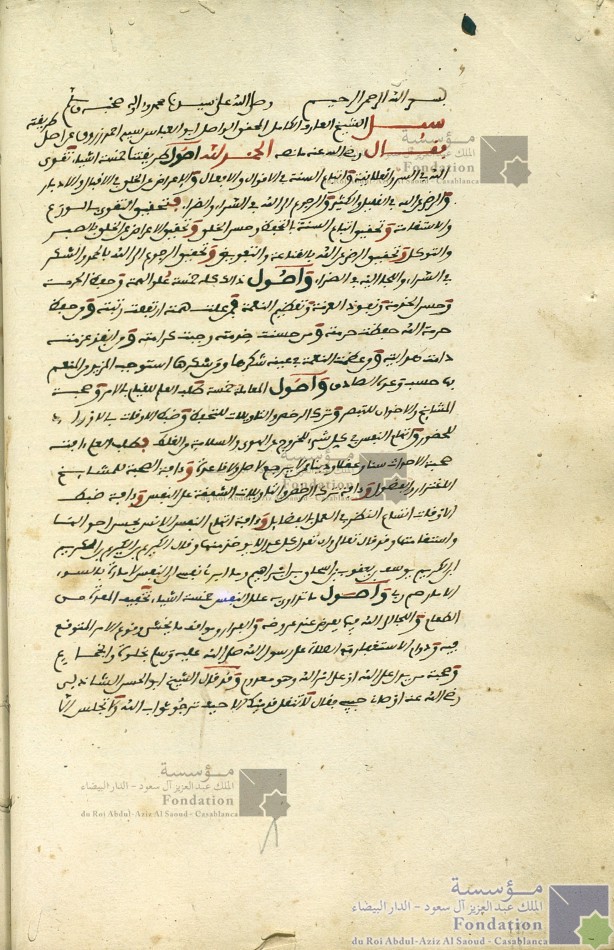 بسم الله الرحمن الرحيم وصلى الله على سيدنا محمد وآله وصحبه وسلم
سئل الشيخ العارف الكامل المحقق الواصل أبو العباس سيدي أحمد زروق عن أصل طريقته
فقال رضي الله عنه ما نصه الحمد لله أصول طريقتنا خمسة أشياء تقوى
الله في السر والعلانية واتباع السنة في الأقوال والأفعال والإعراض عن الخلق في الإقبال والإدبار
والرضى عن الله في القليل والكثير والرجوع إلى الله في السراء والضراء فتحقيق التقوى بالورع
والاستقامة وتحقيق اتباع السنة بالتحفظ وحسن الخلق وتحقيق الإعراض عن الخلق بالصبر
والتوكل وتحقيق الرضى عن الله بالقناعة والتفويض وتحقيق الرجوع إلى الله بالحمد والشكر
في السراء واللجإ إليه في الضراء وأصول ذلك كله خمسة علو الهمة وحفظ الحرمة
وحسن الخدمة ونفوذ العزمة وتعظيم النعمة فمن علت همته ارتفعت رتبته ومن حفظ
حرمة الله حفظت حرمته ومن حسنت خدمته وجبت كرامته ومن أنفذ عزمته
دامت هدايته ومن عظمت النعمة في عينه شكرها ومن شكرها استوجب المزيد من المنعم
بها حسب وعد الصادق وأصول المعاملة خمسة طلب العلم للقيام بالأمر وصحبة
المشايخ والإخوان للتبصر وترك الرخص والتأويلات للتحفظ وضبط الأوقات بالأوراد
للحضور واتهام النفس في كل شيء للخروج عن الهوى والسلامة من الغلط فطلب العلم آفته
صحبة الأحداث سنا وعقلا ودينا مما لا يرجع لأصل ولا قاعدة وآفة الصحبة للمشايخ
الاغترار والفضول وآفة ترك الرخص والتأويلات الشفقة على النفس وآفة ضبط
الأوقات اتساع النظر في العمل بالفضائل وآفة اتهام النفس الأنس بحسن أحوالها
واستقامتها وقد قال تعالى وإن تعدل كل عدل لا يؤخذ منها وقال الكريم بن الكريم بن الكريم
ابن الكريم يوسف بن يعقوب بن إسحاق بن إبراهيم وما أبرئ نفسي إن النفس لأمارة بالسوء
إلا ما رحم ربي وأصول ما تداوى به علل النفس خمسة أشياء تخفيف المعدة من
الطعام واللجأ إلى الله فيما يعرض عند عروضه والفرار من مواقف ما يخشى وقوع الأمر المتوقع
فيه ودوام الاستغفار مع الصلاة على رسول الله صلى الله عليه وسلم بخلوة واجتماع
وصحبة من يدل على الله أو على أمر الله وهو معدوم وقد قال الشيخ أبو الحسن الشاذلي
رضي الله عنه أوصاني حبيبي فقال لا تنقل قدميك إلا حيث ترجو ثواب الله ولا تجلس إلا
مؤسسة
الملك عبد العزيز آل سعود - الدار البيضاء
Fondation
du Roi Abdul-Aziz Al Saoud - Casablanca